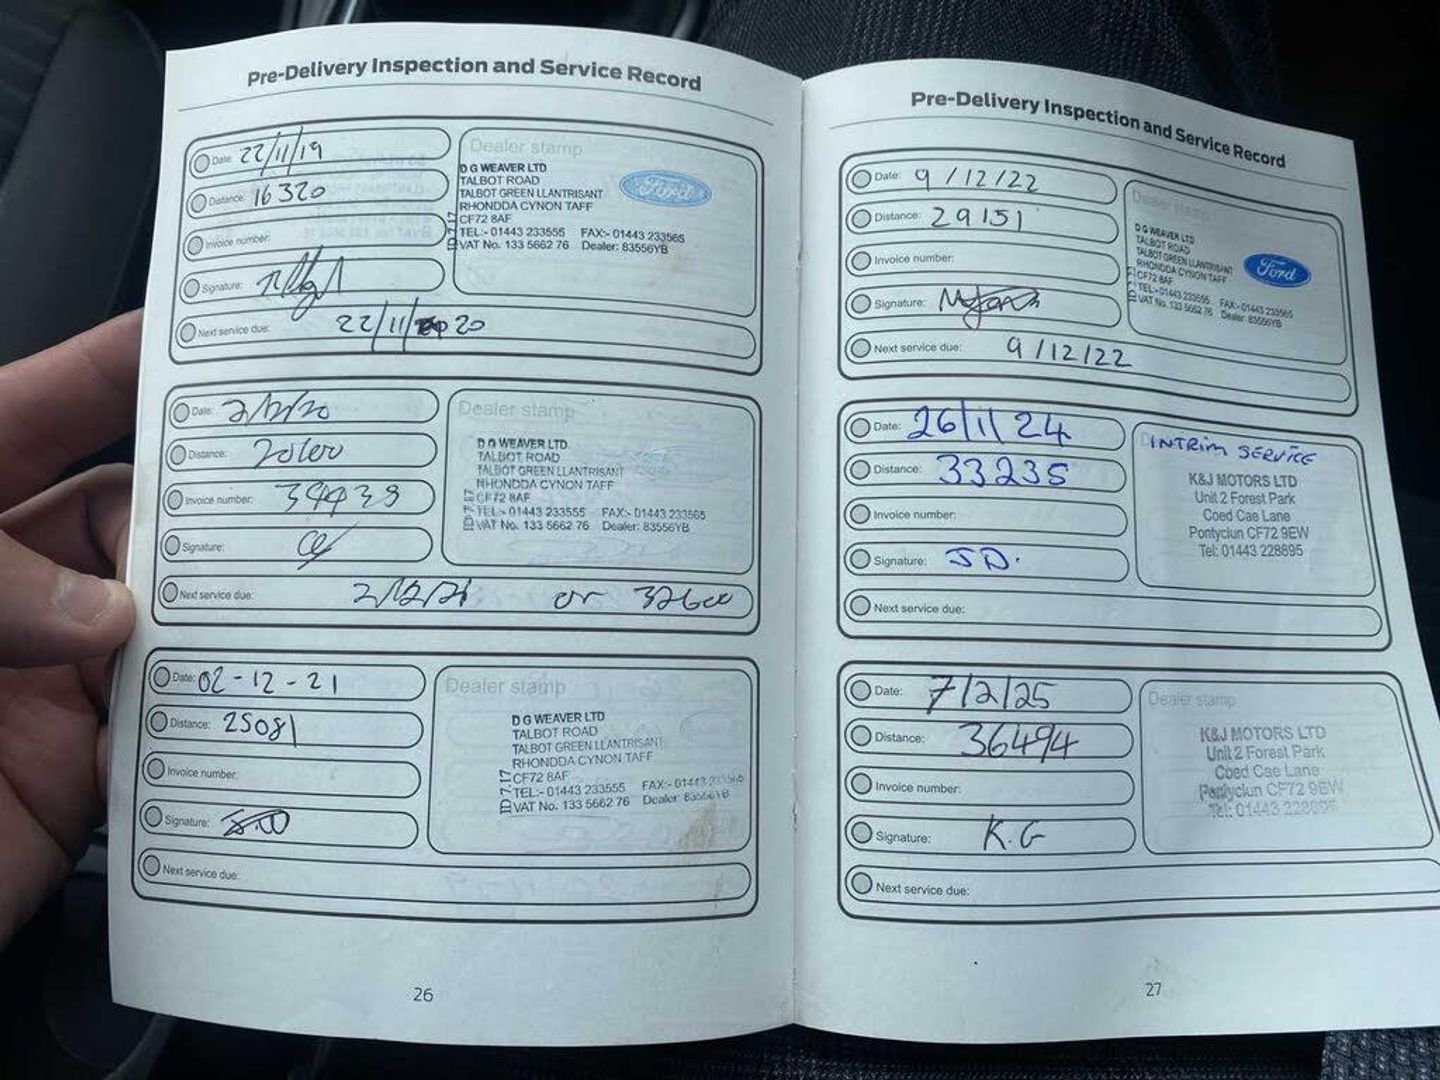 Pre-Delivery Inspection and Service Record
Date: 22/11/19
Distance: 16320
Invoice number:
Signature:
Next service due: 22/11/20
Dealer stamp
D G WEAVER LTD
TALBOT ROAD
TALBOT GREEN LLANTRISANT
RHONDDA CYNON TAFF
CF72 8AF
TEL:- 01443 233555 FAX:- 01443 233565
VAT No. 133 5662 76 Dealer: 83556YB
ID 7.17
Ford
Date: 2/12/20
Distance:
Invoice number: 39939
Signature:
Next service due: 2/12/21 or 32600
Dealer stamp
D G WEAVER LTD
TALBOT ROAD
TALBOT GREEN LLANTRISANT
RHONDDA CYNON TAFF
CF72 8AF
TEL:- 01443 233555 FAX:- 01443 233565
VAT No. 133 5662 76 Dealer: 83556YB
ID 7.17
Date: 02-12-21
Distance: 25081
Invoice number:
Signature:
Next service due:
Dealer stamp
D G WEAVER LTD
TALBOT ROAD
TALBOT GREEN LLANTRISANT
RHONDDA CYNON TAFF
CF72 8AF
TEL:- 01443 233555 FAX:- 01443 233565
VAT No. 133 5662 76 Dealer: 83556YB
ID 7.17
26
Pre-Delivery Inspection and Service Record
Date: 9/12/22
Distance: 29151
Invoice number:
Signature:
Next service due: 9/12/22
Dealer stamp
D G WEAVER LTD
TALBOT ROAD
TALBOT GREEN LLANTRISANT
RHONDDA CYNON TAFF
CF72 8AF
TEL:- 01443 233555 FAX:- 01443 233565
VAT No. 133 5662 76 Dealer: 83556YB
ID 7.17
Ford
Date: 26/11/24
Distance: 33235
Invoice number:
Signature: JD.
Next service due:
INTRIM SERVICE
K&J MOTORS LTD
Unit 2 Forest Park
Coed Cae Lane
Pontyclun CF72 9EW
Tel: 01443 228895
Date: 7/2/25
Distance: 36494
Invoice number:
Signature: K.G
Next service due:
Dealer stamp
K&J MOTORS LTD
Unit 2 Forest Park
Coed Cae Lane
Pontyclun CF72 9EW
Tel: 01443 228895
27